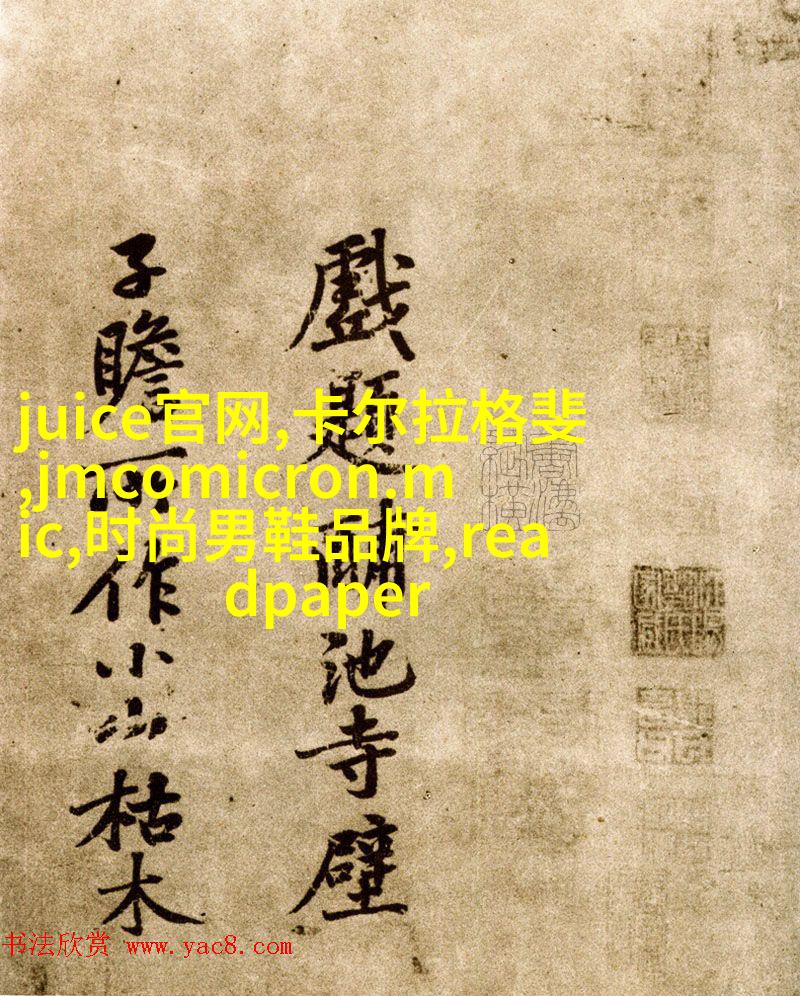 戲題池寺壁
子瞻所作小山枯木
juice官网,卡尔拉格斐
,jmcomicron.m
ic,时尚男鞋品牌,rea
dpaper
书法欣赏 www.yac8.com